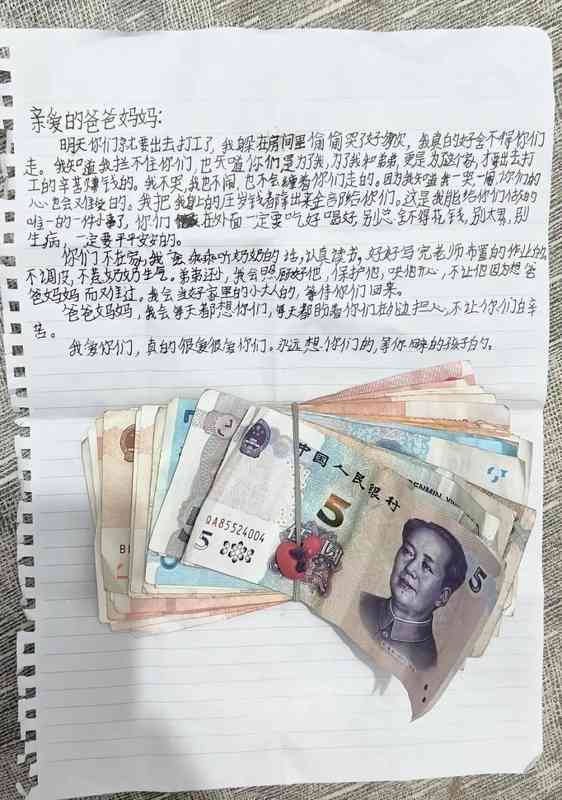 亲爱的爸爸妈妈:
明天你们就要出去打工了,我躲在房间里偷偷哭了好多次,我真的好舍不得你们
走。我知道我拦不住你们,也知道你们是为了我,为了我和弟弟,更是为这个家,才要出去打
工的辛苦赚钱的。我不哭,我也不闹,也不会缠着你们走的。因为我知道我一哭一闹,你们的
心也会难受的。我把我的压岁钱都拿出来全部给你们。这是我能给你们做的
唯一的一件小事了,你们在外面一定要吃好喝好,别舍不得花钱,别太累,别
生病,一定要平平安安的。
你们不在家,我会乖乖听奶奶的话,认真读书,好好写完老师布置的作业
不调皮,不惹奶奶生气。弟弟还小,我会照顾好他,保护他,哄他开心,不让他因为想爸
爸妈妈而难过。我会当好家里的小大人的,等待你们回来。
爸爸妈妈,我会每天都想你们,每天都盼着你们,不让你们白辛
苦。
我爱你们,真的很爱很爱你们。永远想你们的,等你回来的孩子
中国人民银行
5
QA85524004
5
5